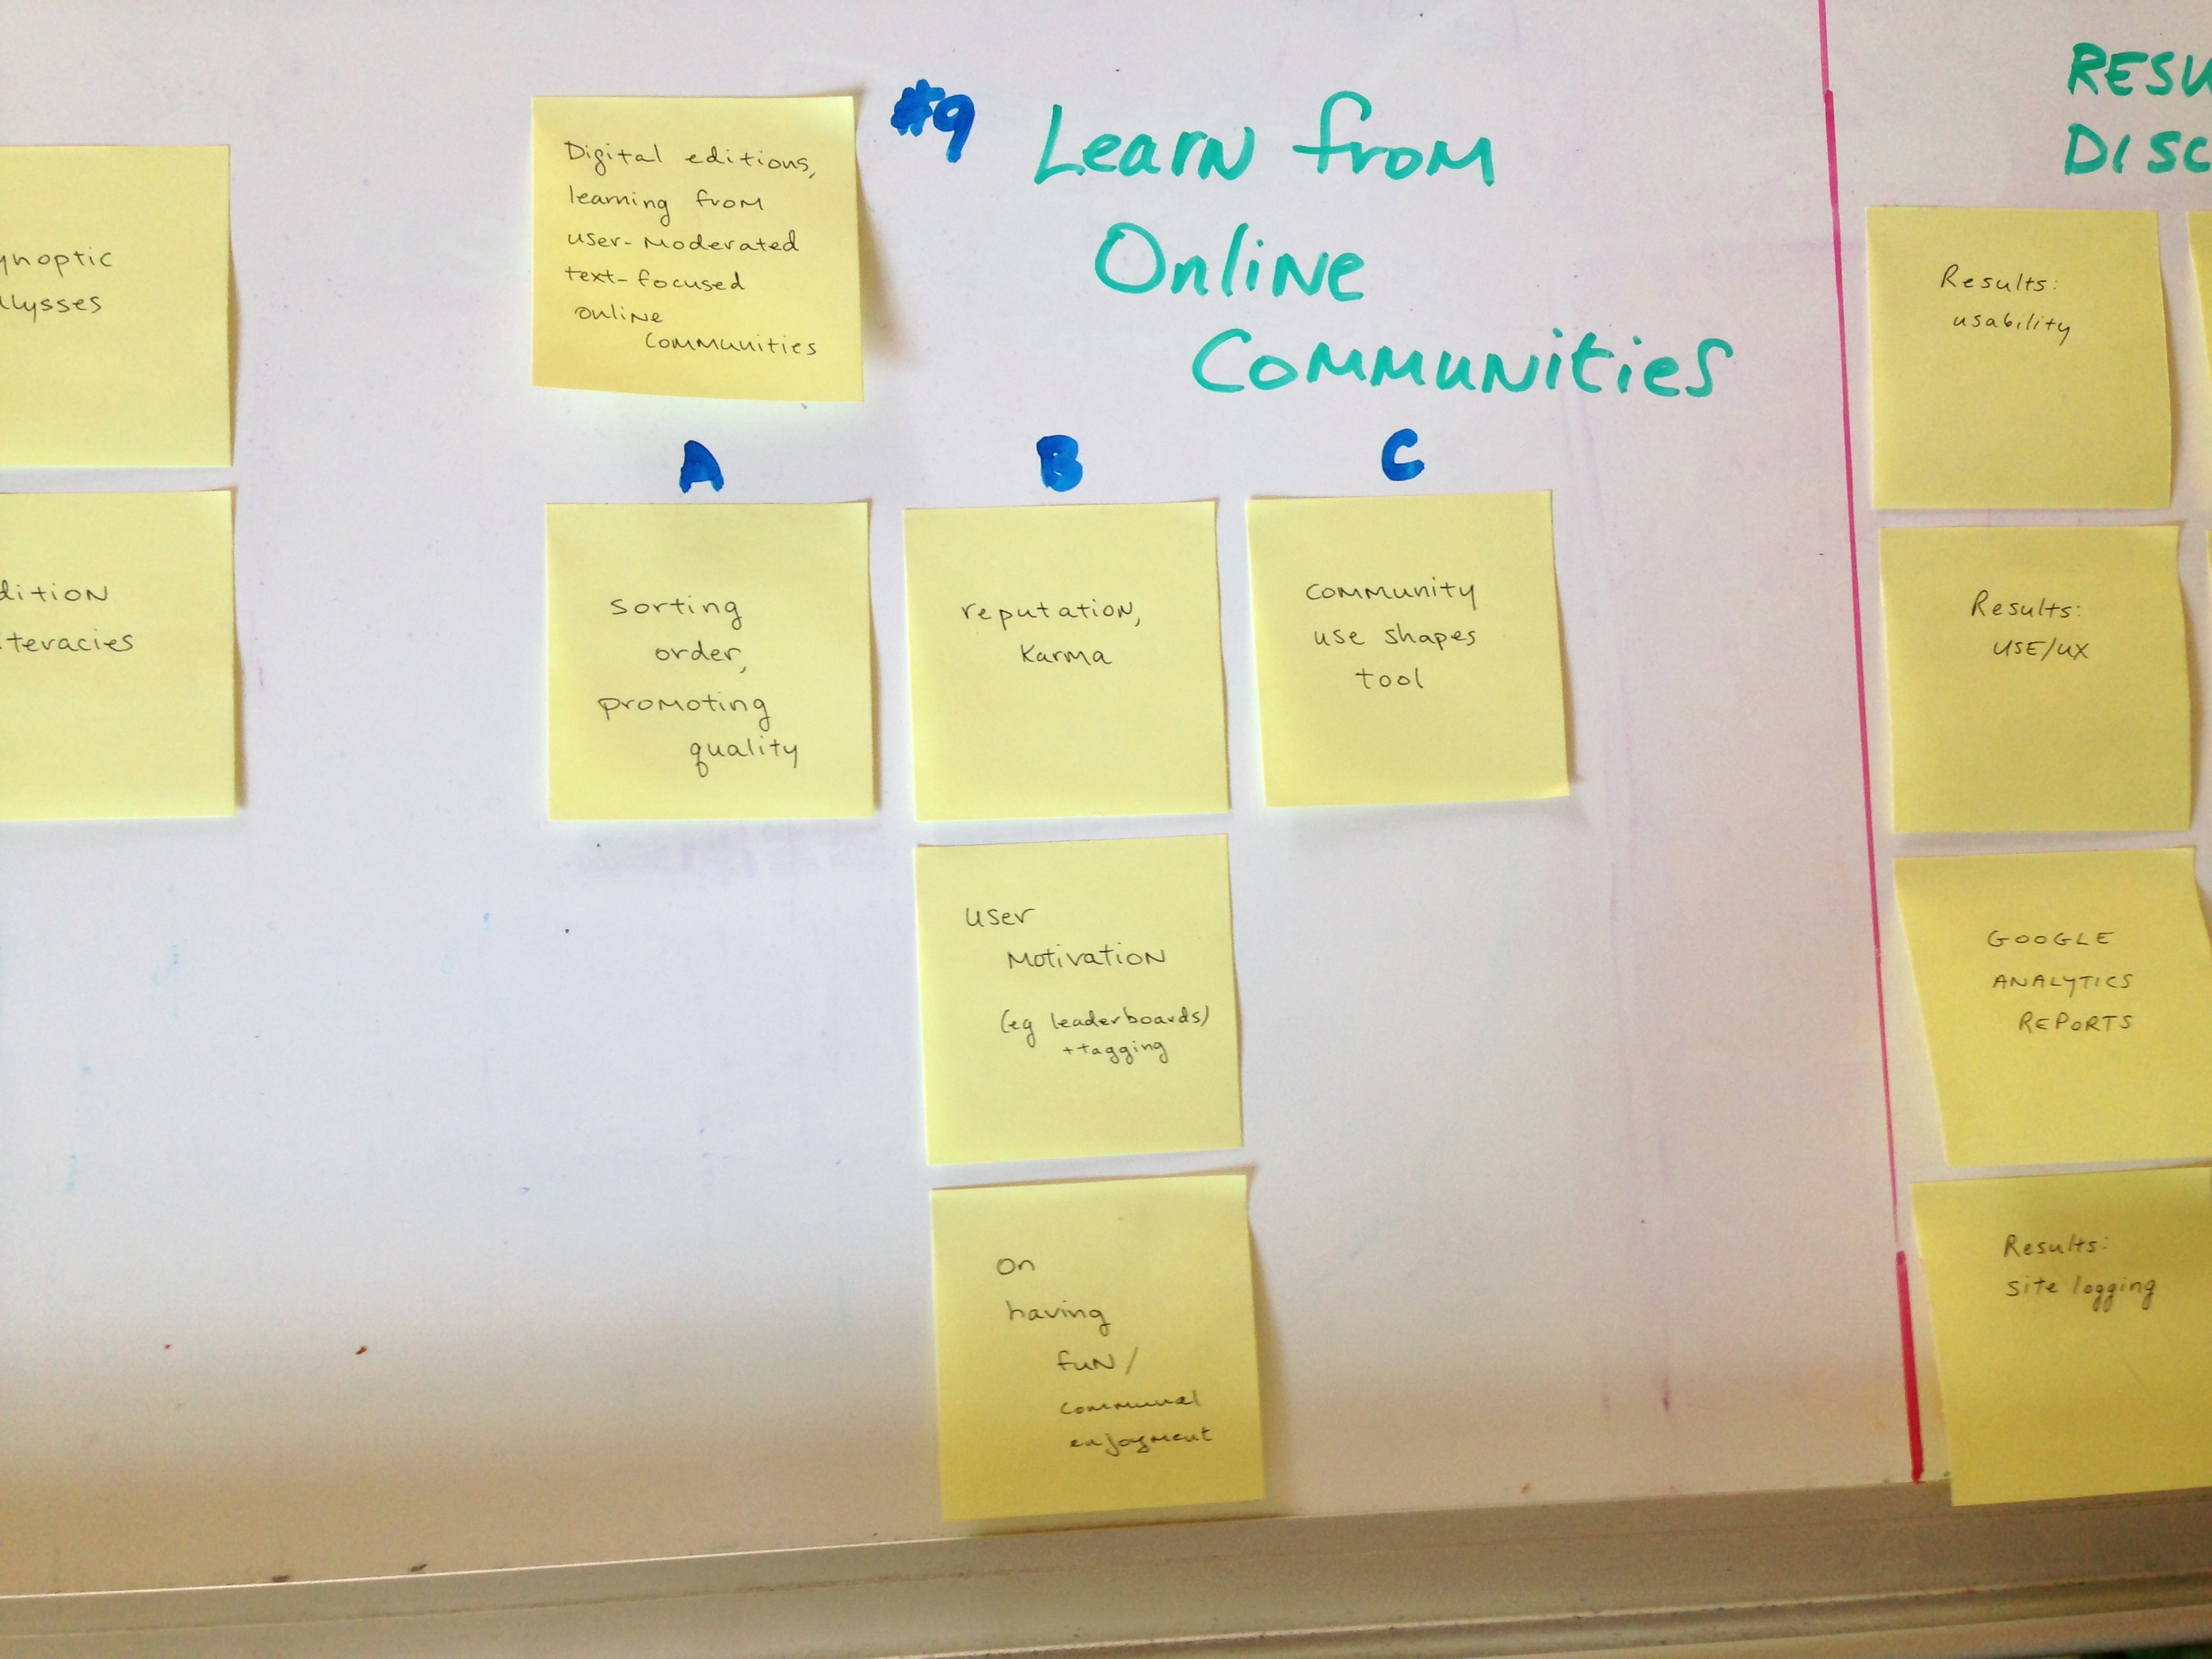 ynoptic
lysses
dition
teracies
Digital editions,
learning from
user-moderated
text-focused
online
communities
#9
Learn from
Online
Communities
A
B
C
sorting
order,
promoting
quality
reputation,
Karma
user
motivation
(eg leaderboards)
+tagging
on
having
fun/
communal
enjoyment
community
use shapes
tool
RESU
DISC
Results:
usability
Results:
USE/UX
GOOGLE
ANALYTICS
REPORTS
Results:
site logging